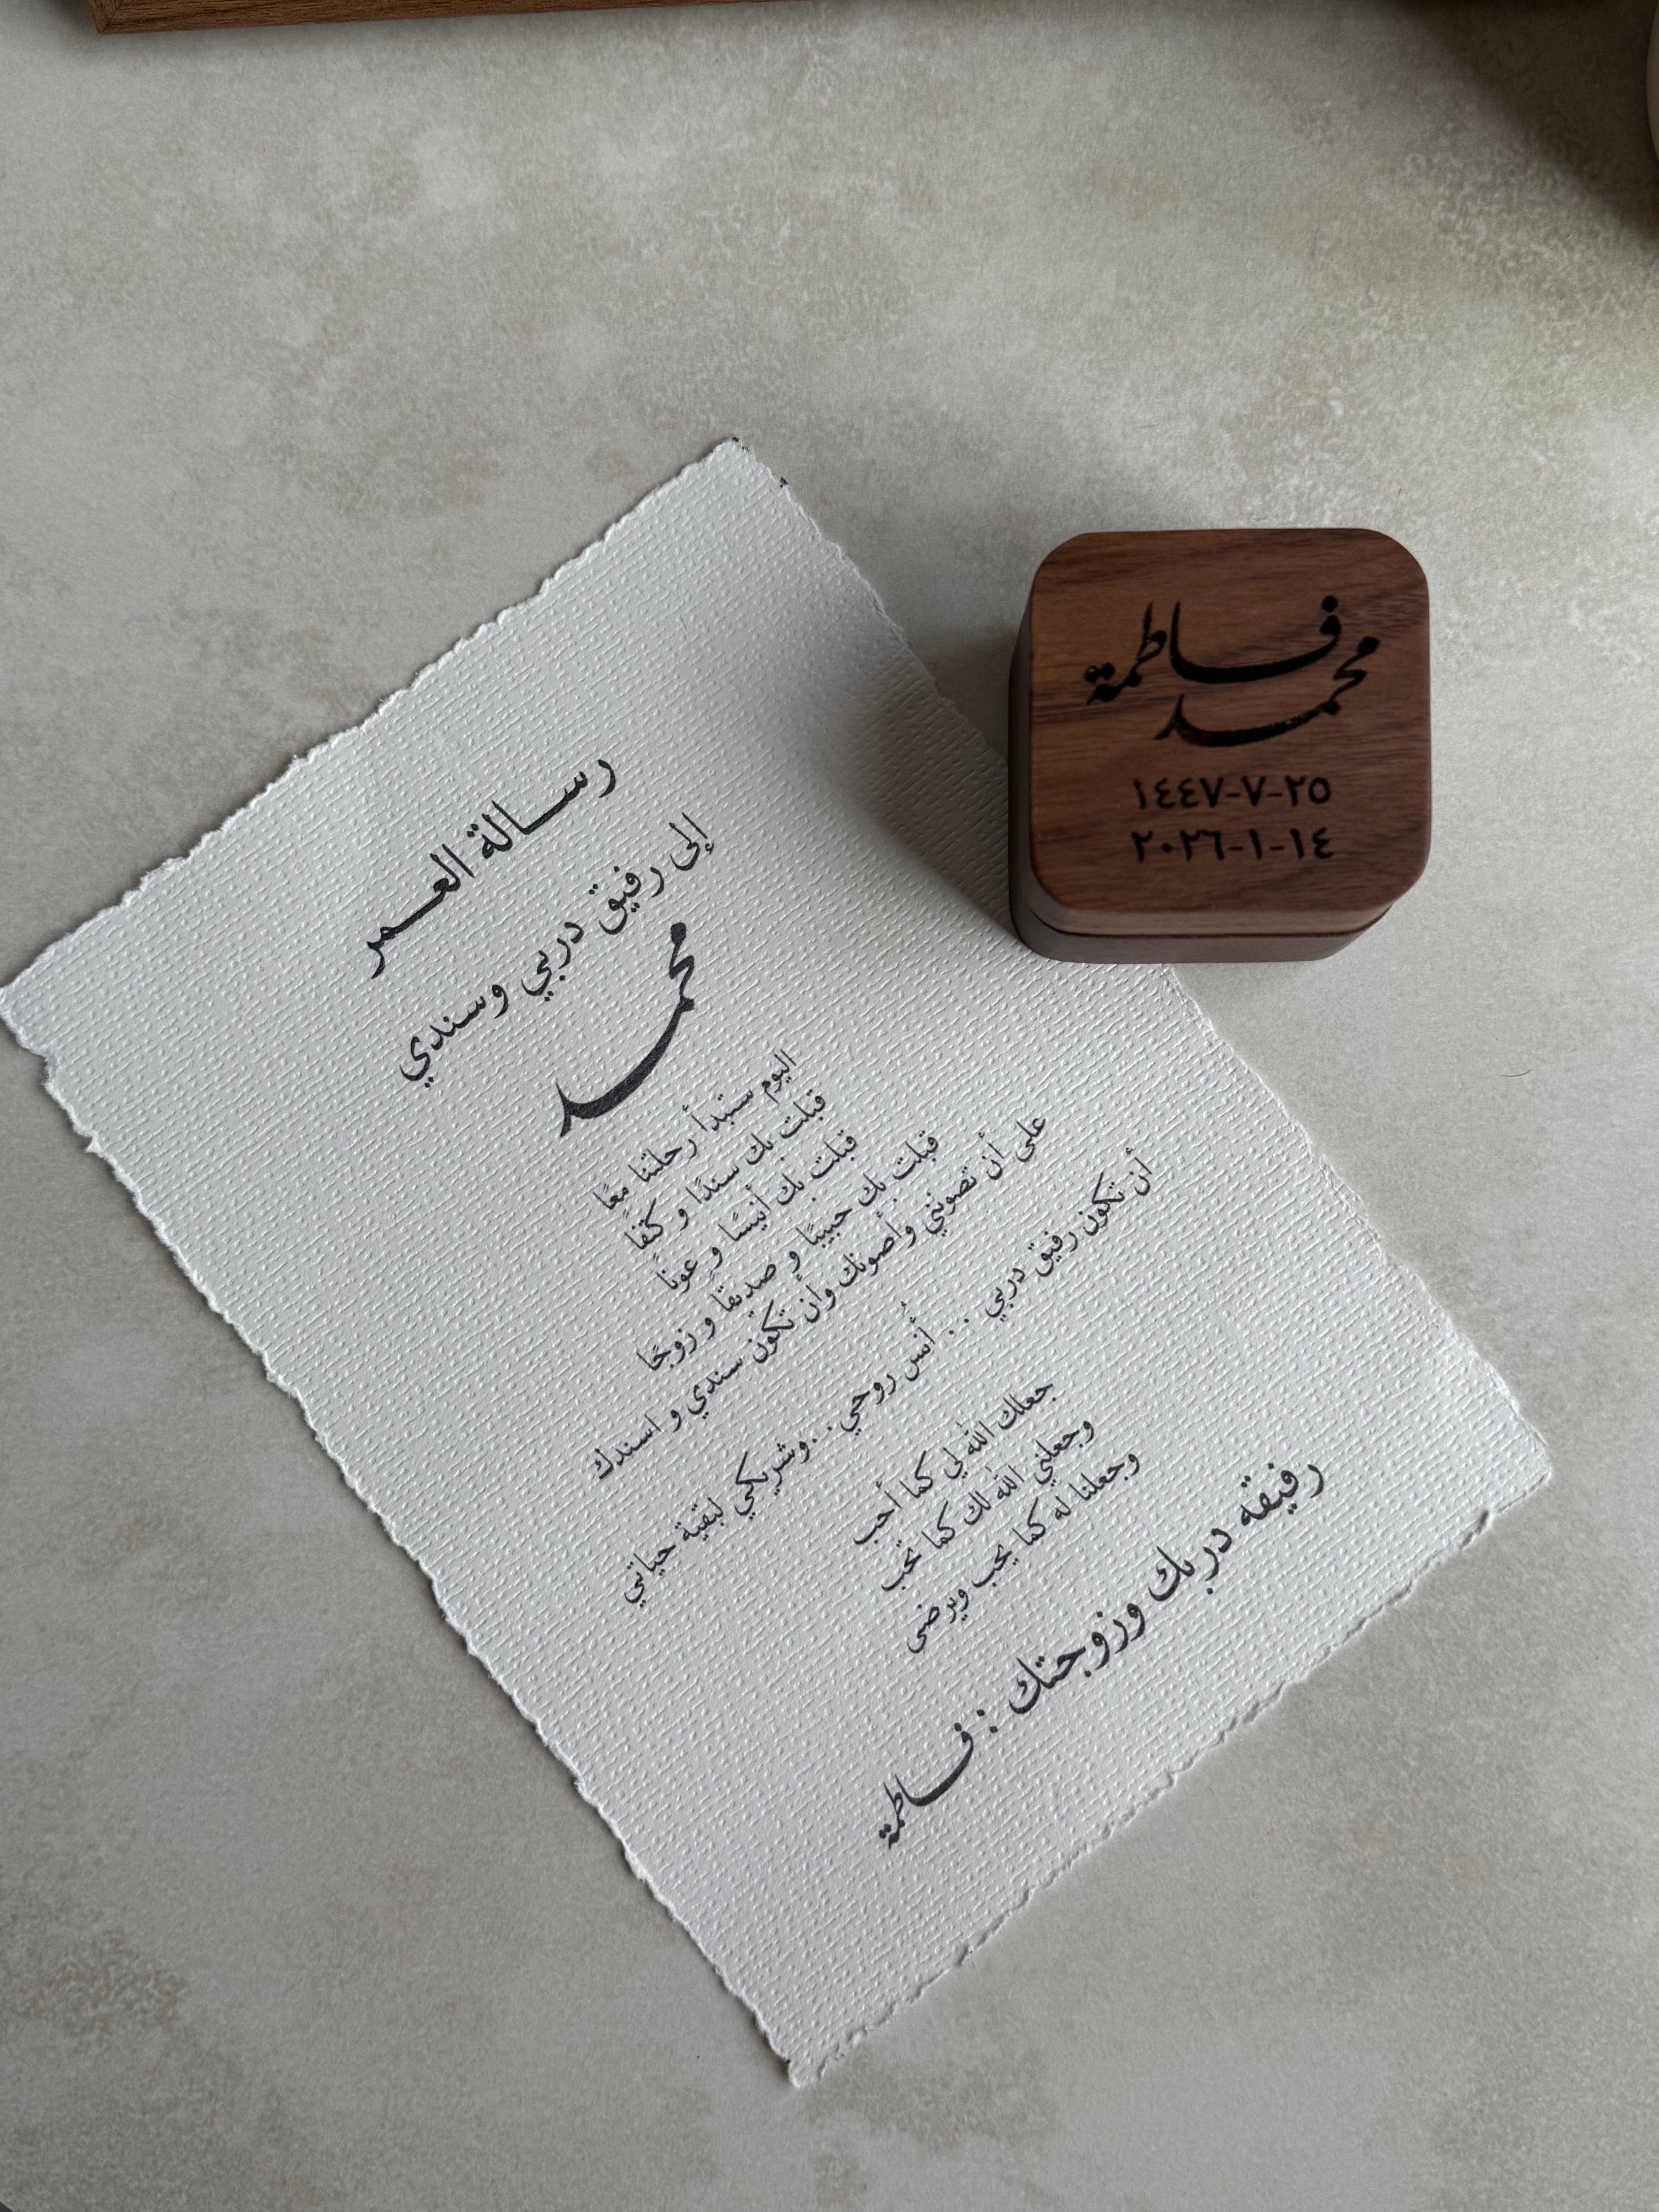 رسالة العمر
إلى رفيق دربي وسندي
محمد
اليوم ستبدأ رحلتنا معًا
قبلت بك سندًا و كتفًا
قبلت بك أنيسًا و عونًا
قبلت بك حبيبًا و صديقًا و زوجًا
على أن تصونني وأصونك وأن تكون سندي و اسندك
أن تكون رفيق دربي . . أُنس روحي . . وشريكي لبقية حياتي
جعلك الله لي كما أحب
وجعلني الله لك كما تحب
وجعلنا له كما يحب ويرضى
رفيقه دربك وزوجتك : فاطمة
فاطمة
محمد
٢٥-٧-١٤٤٧
١٤-١-٢٠٢٦